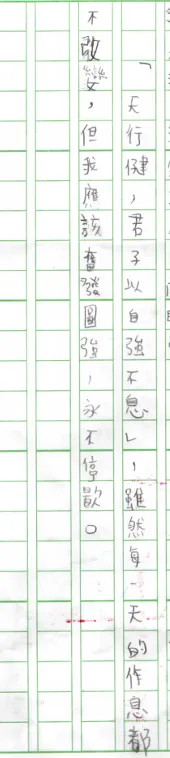 「天行健，君子以自強不息」，雖然每一天的作息都
不改變，但我應該奮發圖強，永不停歇。